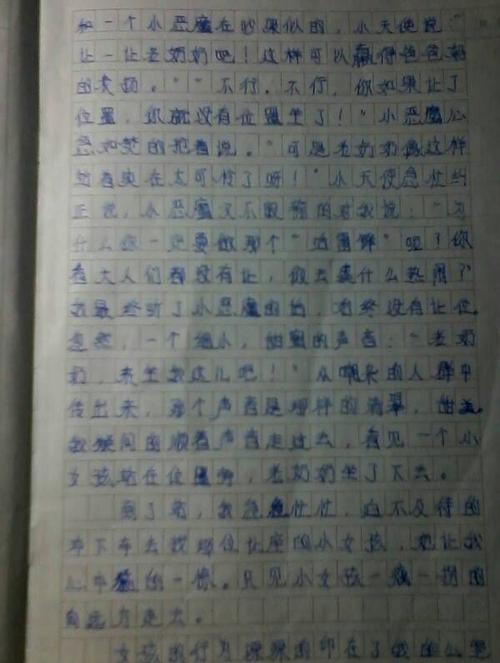 和一个小恶魔在吵架似的，小天使说：“
让一让老奶奶吧！这样可以赢得爸爸妈妈
的表扬。”“不行，不行，你如果让了
位置，你就没有位置坐了！”小恶魔心
急如焚的抱着说。“可是老奶奶像这样
站着实在太可怜了呀！”小天使急忙纠
正说，小恶魔又不服的对我说：“为
什么你一定要做那个“出头鸟”呢？你
看大人们都没有让，你去凑什么热闹？”
我最终听了小恶魔的话，始终没有让位。
忽然，一个细小，甜蜜的声音：“老奶
奶，来坐我这儿吧！”从嘈杂的人群中
传出来，那个声音是那样的清翠，甜美。
我疑问的顺着声音走过去，看见一个小
女孩站在位置旁，老奶奶坐了下去。
到了站，我急急忙忙，迫不及待的
冲下车去找那位让座的小女孩，她让我
心中猛的一惊。只见小女孩一瘸一拐的
向远方走去。
女孩的行为深深的印在了我的心里